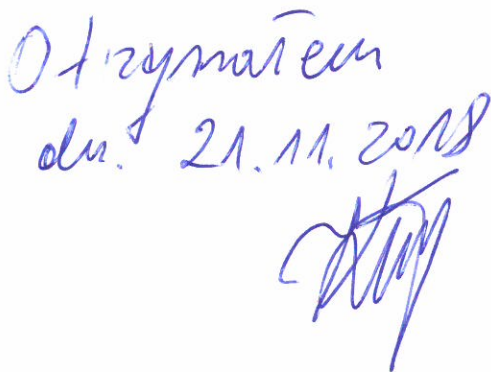 Otrzymałem
dn. 21.11.2018